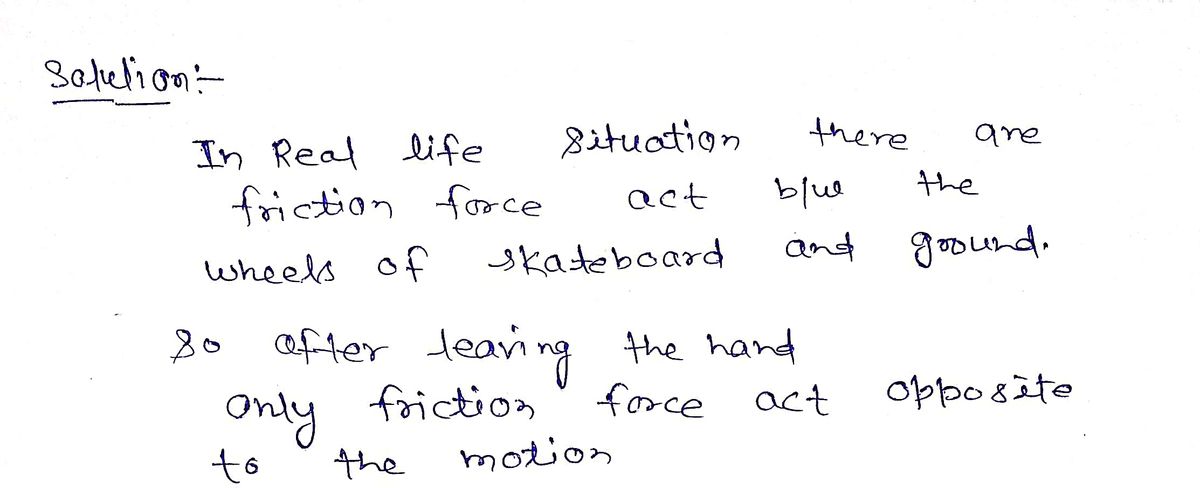 Solution:-
In Real life situation there are
friction force act b/w the
wheels of skateboard and ground.
So after leaving the hand
only friction force act opposite
to the motion